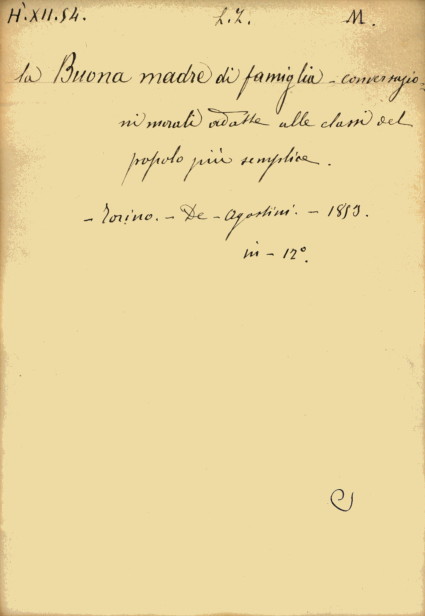 H.XII.54. L.Z. M.
la Buona madre di famiglia - conversazio=
ni morali adatte alle classi del
popolo più semplice.
- Torino. - De - Agostini. - 1853.
in - 12°.